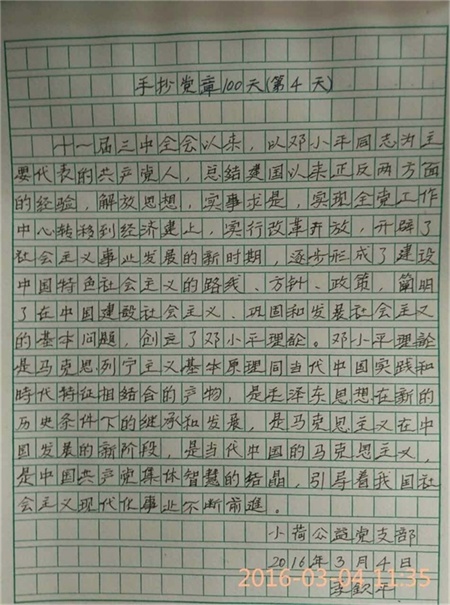 手抄党章100天(第4天)
十一届三中全会以来，以邓小平同志为主
要代表的共产党人，总结建国以来正反两方面
的经验，解放思想，实事求是，实现全党工作
中心转移到经济建上，实行改革开放，开辟了
社会主义事业发展的新时期，逐步形成了建设
中国特色社会主义的路线、方针、政策，阐明
了在中国建設社会主义、巩固和发展社会主义
的基本问题，创立了邓小平理論。邓小平理論
是马克思列宁主义基本原理同当代中国实践和
時代特征相结合的产物，是毛泽东思想在新的
历史条件下的继承和发展，是马克思主义在中
国发展的新阶段，是当代中国的马克思主义，
是中国共产党集体智慧的结晶，引导着我国社
会主义现代化事业不断前進。
小荷公益党支部
2016年3月4日
2016-03-04 11:35